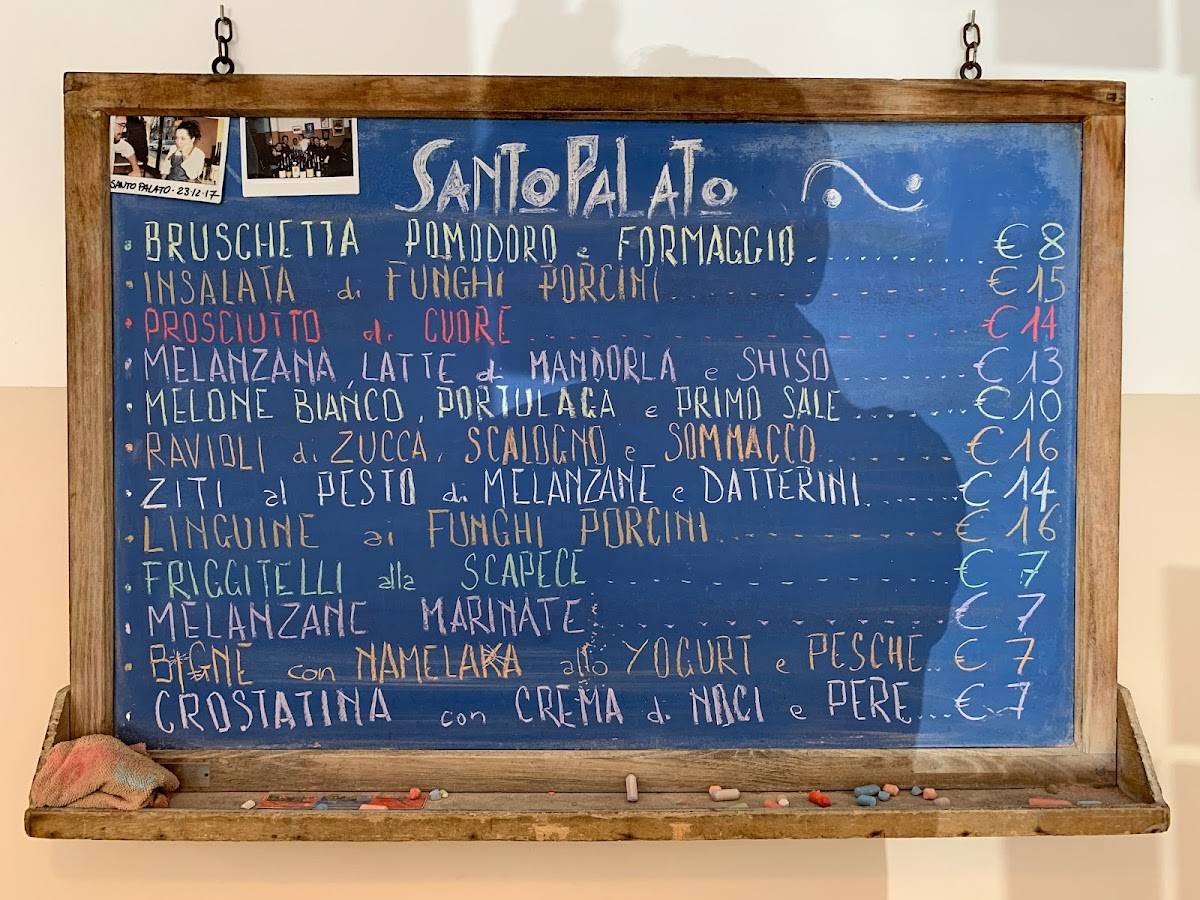 SANTO PALATO - 23·12·17
SANTO PALATO
BRUSCHETTA POMODORO e FORMAGGIO € 8
INSALATA di FUNGHI PORCINI € 15
PROSCIUTTO di CUORE € 14
MELANZANA, LATTE di MANDORLA e SHISO € 13
MELONE BIANCO, PORTULACA e PRIMO SALE € 10
RAVIOLI di ZUCCA, SCALOGNO e SOMMACCO € 16
ZITI al PESTO di MELANZANE e DATTERINI € 14
LINGUINE ai FUNGHI PORCINI € 16
FRIGGITELLI alla SCAPECE € 7
MELANZANE MARINATE € 7
BIGNE con NAMELAKA allo YOGURT e PESCHE € 7
CROSTATINA con CREMA di NOCI e PERE € 7